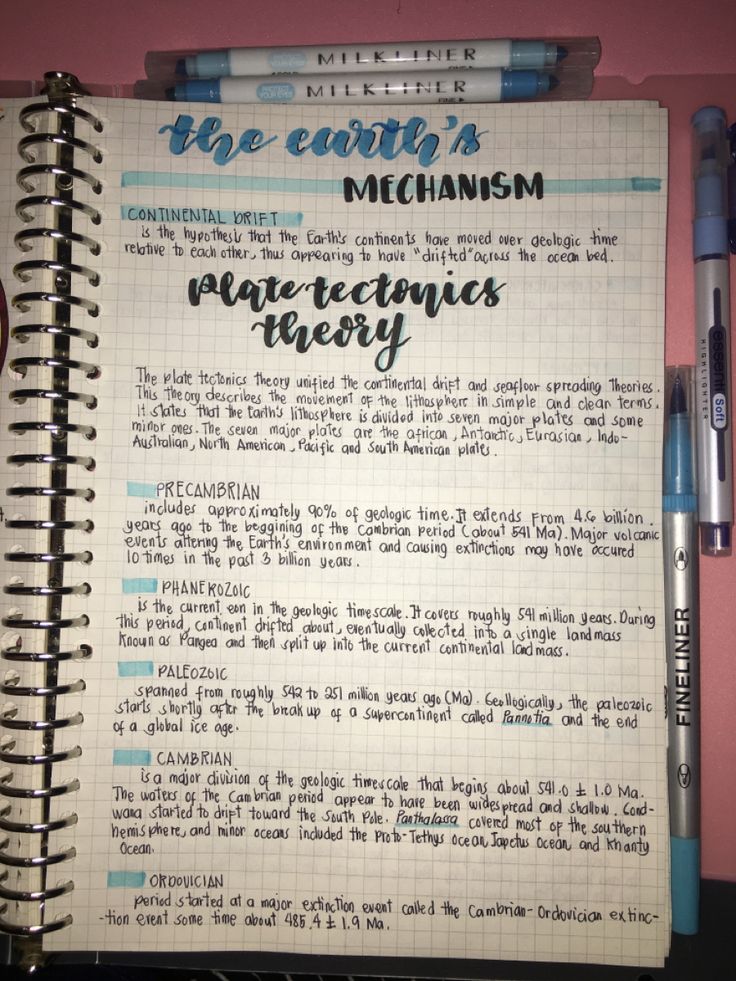 MILKLINER
PROTECT YOUR EYES
MILKLINER
FINE
the earth's
MECHANISM
CONTINENTAL DRIFT
is the hypothesis that the Earth's continents have moved over geologic time
relative to each other, thus appearing to have "drifted" across the ocean bed.
plate tectonics
theory
The plate tectonics theory unified the continental drift and seafloor spreading theories.
This theory describes the movement of the lithosphere in simple and clear terms.
It states that the Earth's lithosphere is divided into seven major plates and some
minor ones. The seven major plates are the african, Antarctic, Eurasian, Indo-
Australian, North American, Pacific and South American plates.
PRECAMBRIAN
includes approximately 90% of geologic time. It extends from 4.6 billion
years ago to the beggining of the Cambrian period (about 541 Ma). Major volcanic
events altering the Earth's environment and causing extinctions may have occured
10 times in the past 3 billion years.
PHANEROZOIC
is the current eon in the geologic timescale. It covers roughly 541 million years. During
this period, continent drifted about, eventually collected into a single landmass
known as Pangea and then split up into the current continental landmass.
PALEOZOIC
spanned from roughly 542 to 251 million years ago (Ma). Geollogically, the paleozoic
starts shortly after the break up of a supercontinent called Pannotia and the end
of a global ice age.
CAMBRIAN
is a major division of the geologic timescale that begins about 541.0 ± 1.0 Ma.
The waters of the Cambrian period appear to have been widespread and shallow. Gond-
wana started to drift toward the South Pole. Panthalassa covered most of the southern
hemisphere, and minor oceans included the Proto-Tethys ocean, Iapetus Ocean and Khanty
Ocean.
ORDOVICIAN
period started at a major extinction event called the Cambrian-Ordovician extinc-
-tion event some time about 485.4 ± 1.9 Ma.
essenti Soft
HIGHLIGHTER
FINELINER